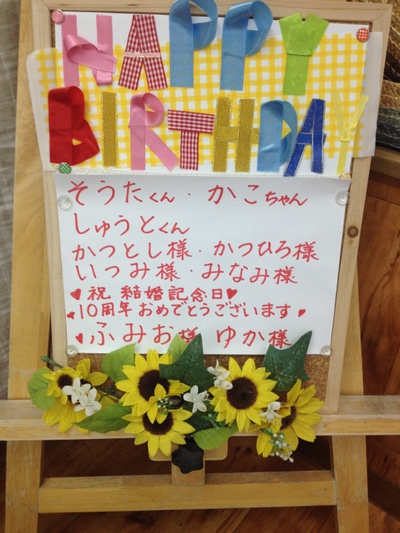 HAPPY
BIRTHDAY
そうたくん・かこちゃん
しゅうとくん
かつとし様・かつひろ様
いつみ様・みなみ様
♥祝 結婚記念日♥
♥10周年おめでとうございます♥
♥ふみお様 ゆか様